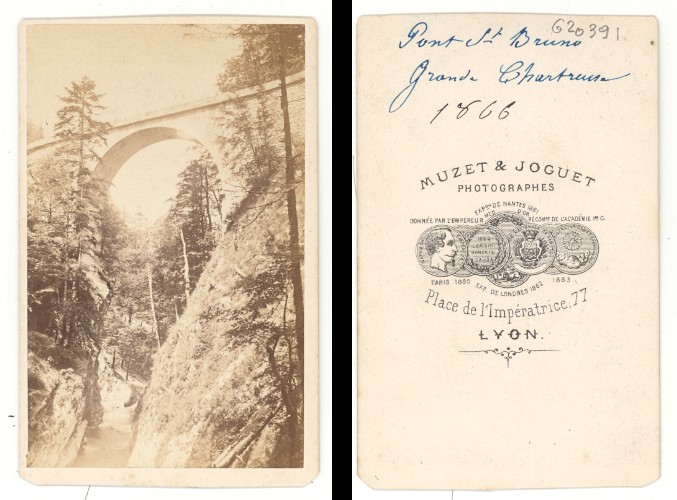 620391.
Pont St Bruno
Grande Chartreuse
1866
MUZET & JOGUET
PHOTOGRAPHES
EXPON DE NANTES 1861
MED. D'OR
DONNÉE PAR L'EMPEREUR
RÉCOMPSE DE L'ACADÉMIE Ile G.
PARIS 1860
EXP. DE LONDRES 1862
1863
Place de l'Impératrice, 77
LYON.